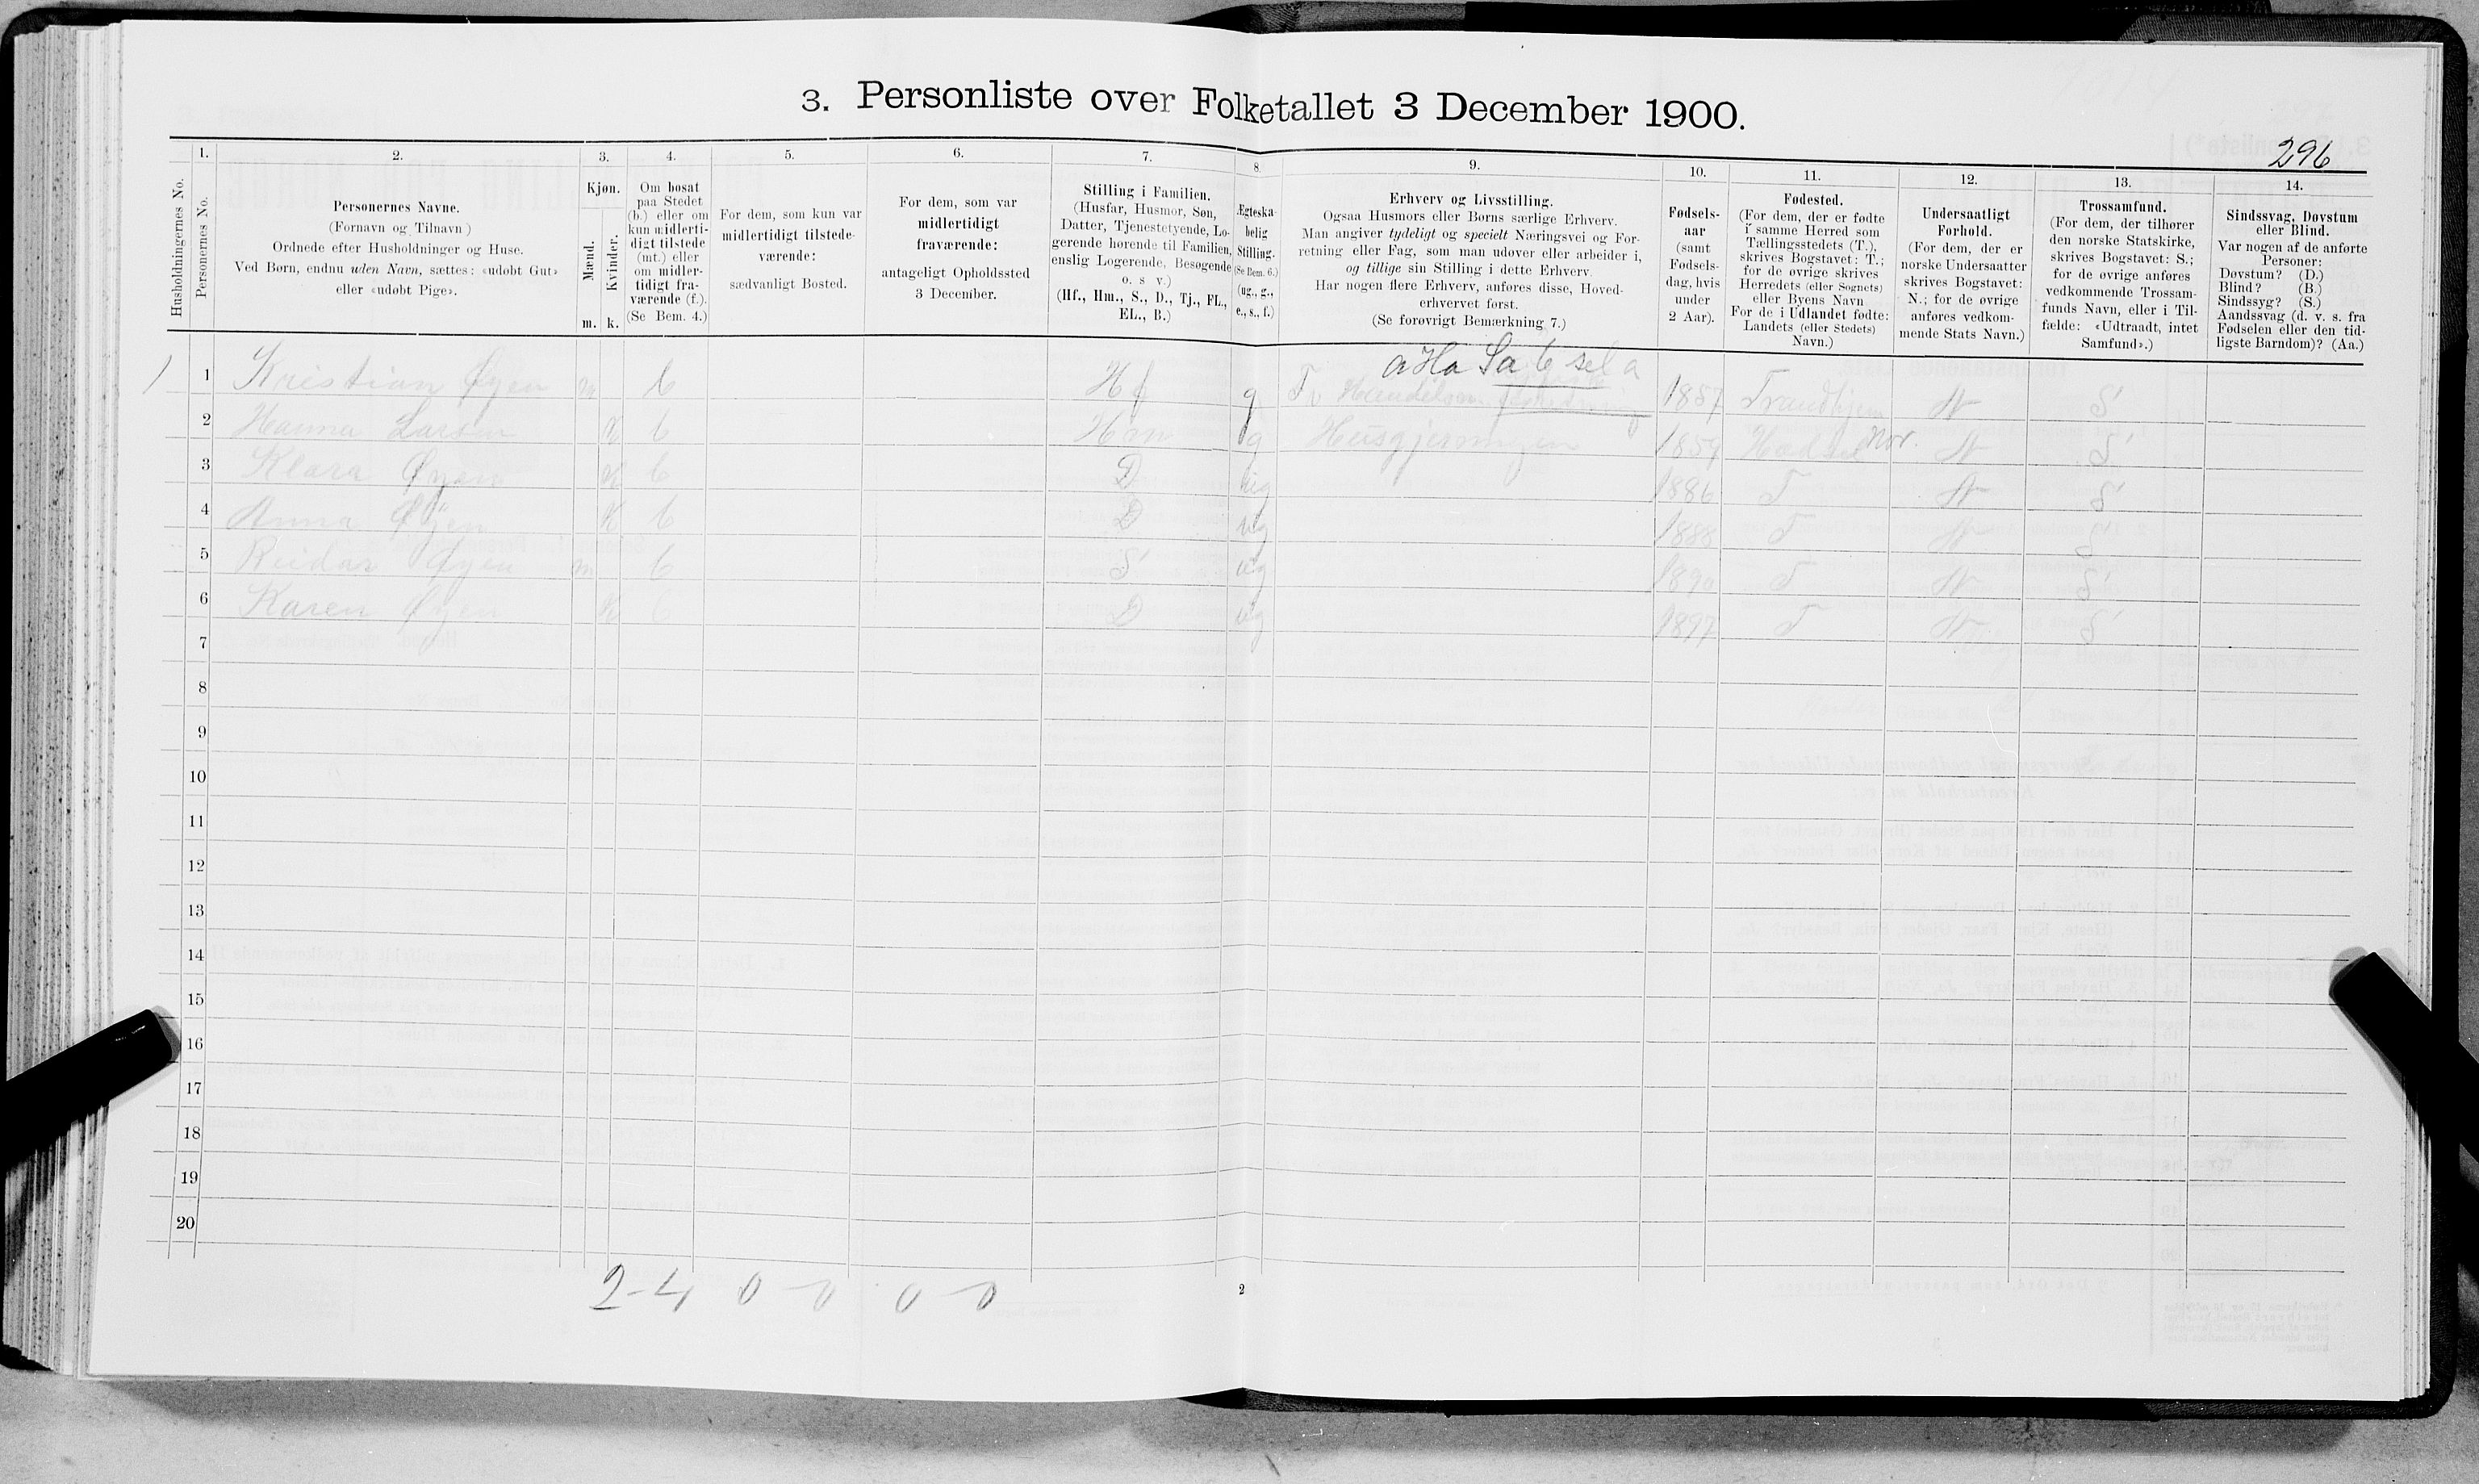 3. Personliste over Folketallet 3 December 1900.
296
Husholdningernes No.
1.
Personernes No.
2.
Personernes Navne.
(Fornavn og Tilnavn)
Ordnede efter Husholdninger og Huse.
Ved Børn, endnu uden Navn, sættes: «udøbt Gut»
eller «udøbt Pige».
3.
Kjøn.
Mænd.
Kvinder.
m. k.
4.
Om bosat
paa Stedet
(b.) eller om
kun midlerti-
digt tilstede
(mt.) eller
om midler-
tidigt fra-
værende (f.).
(Se Bem. 4.)
5.
For dem, som kun var
midlertidigt tilstede-
værende:
sædvanligt Bosted.
6.
For dem, som var
midlertidigt
fraværende:
antageligt Opholdssted
3 December.
7.
Stilling i Familien.
(Husfar, Husmor, Søn,
Datter, Tjenestetyende, Lo-
gerende hørende til Familien,
enslig Logerende, Besøgende
o. s. v.)
(Hf., Hm., S., D., Tj., FL.,
EL., B.)
8.
Ægteska-
belig
Stilling.
(Se Bem. 6.)
(ug., g.,
e., s., f.)
9.
Erhverv og Livsstilling.
Ogsaa Husmors eller Børns særlige Erhverv.
Man angiver tydeligt og specielt Næringsvei og For-
retning eller Fag, som man udøver eller arbeider i,
og tillige sin Stilling i dette Erhverv.
Har nogen flere Erhverv, anføres disse, Hoved-
erhvervet først.
(Se forøvrigt Bemærkning 7.)
10.
Fødsels-
aar
(samt
Fødsels-
dag, hvis
under
2 Aar).
11.
Fødested.
(For dem, der er fødte
i samme Herred som
Tællingsstedets (T.),
skrives Bogstavet: T.;
for de øvrige skrives
Herredets (eller Sognets)
eller Byens Navn
For de i Udlandet fødte:
Landets (eller Stedets)
Navn.)
12.
Undersaatligt
Forhold.
(For dem, der er
norske Undersaatter
skrives Bogstavet:
N.; for de øvrige
anføres vedkom-
mende Stats Navn.)
13.
Trossamfund.
(For dem, der tilhører
den norske Statskirke,
skrives Bogstavet: S.;
for de øvrige anføres
vedkommende Trossam-
funds Navn, eller i Til-
fælde: «Udtraadt, intet
Samfund».)
14.
Sindssvag, Døvstum
eller Blind.
Var nogen af de anførte
Personer:
Døvstum? (D.)
Blind? (B.)
Sindssyg? (S.)
Aandssvag (d. v. s. fra
Fødselen eller den tid-
ligste Barndom)? (Aa.)
1 1 Kristian Øyen m b Hf g 1857 Trondhjem N S
2 Hanna Larsen K b Hm g Husgjerningen 1859 Hadsel Nor. N S
3 Klara Øyen K b D ug 1886 T N S
4 Anna Øyen K b D ug 1888 T N S
5 Reidar Øyen m b S ug 1890 T N S
6 Karen Øyen K b D ug 1897 T N S
7
8
9
10
11
12
13
14
15
16
17
18
19
20
2-4 0-0 0-0
2